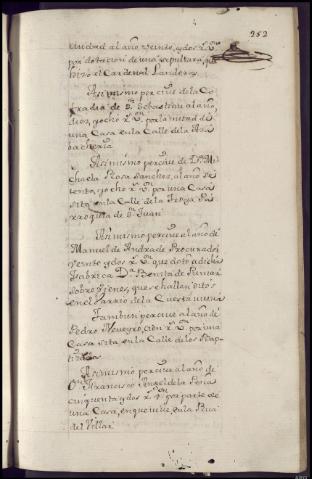 252
Andrad al año veinte, y dos r.s v.n
por dotacion de una sepultura, que
hizo el Cardenal Landera
Asimismo percive de la Co
fradia de S. Sebastian al año,
diez, y ocho r.s v.n por la mitad de
una Casa en la Calle de la Aza
bacheria
Asimismo percive de D.a Mi
chaela Rosa Sanchez, al año se
tenta, y ocho r.s v.n por una Casa
sita en la Calle de la Troya Pa
rroquia de S.n Juan
Asimismo percive al año de
Manuel de Andrade Procurador
veinte y dos r.s v.n que dotó a dicha
Fabrica D.a Benita de
sobre vienes, que se hallan sitos
en el varrio de la Cuesta nueva
Tambien percive al año de
Pedro Noueyro, cien r.s v.n por una
Casa sita en la Calle de los Bap
tizados
Asimismo percive al año de
D.n Francisco Angel de la Peña
cinquenta y dos r.s v.n por parte de
una Casa, en que vive en la Rua
del Villar